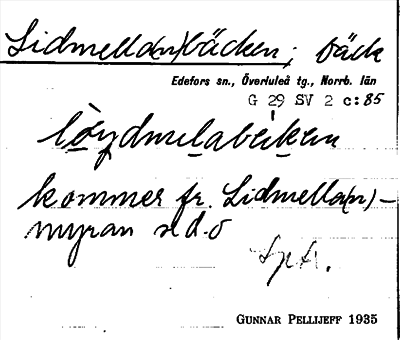 Lidmella(n)bäcken; bäck
Edefors sn., Överluleå tg., Norrb. län
G 29 SV 2 c:85
kommer fr. Lidmella(n)-
myran n d.ö
GUNNAR PELLIJEFF 1935